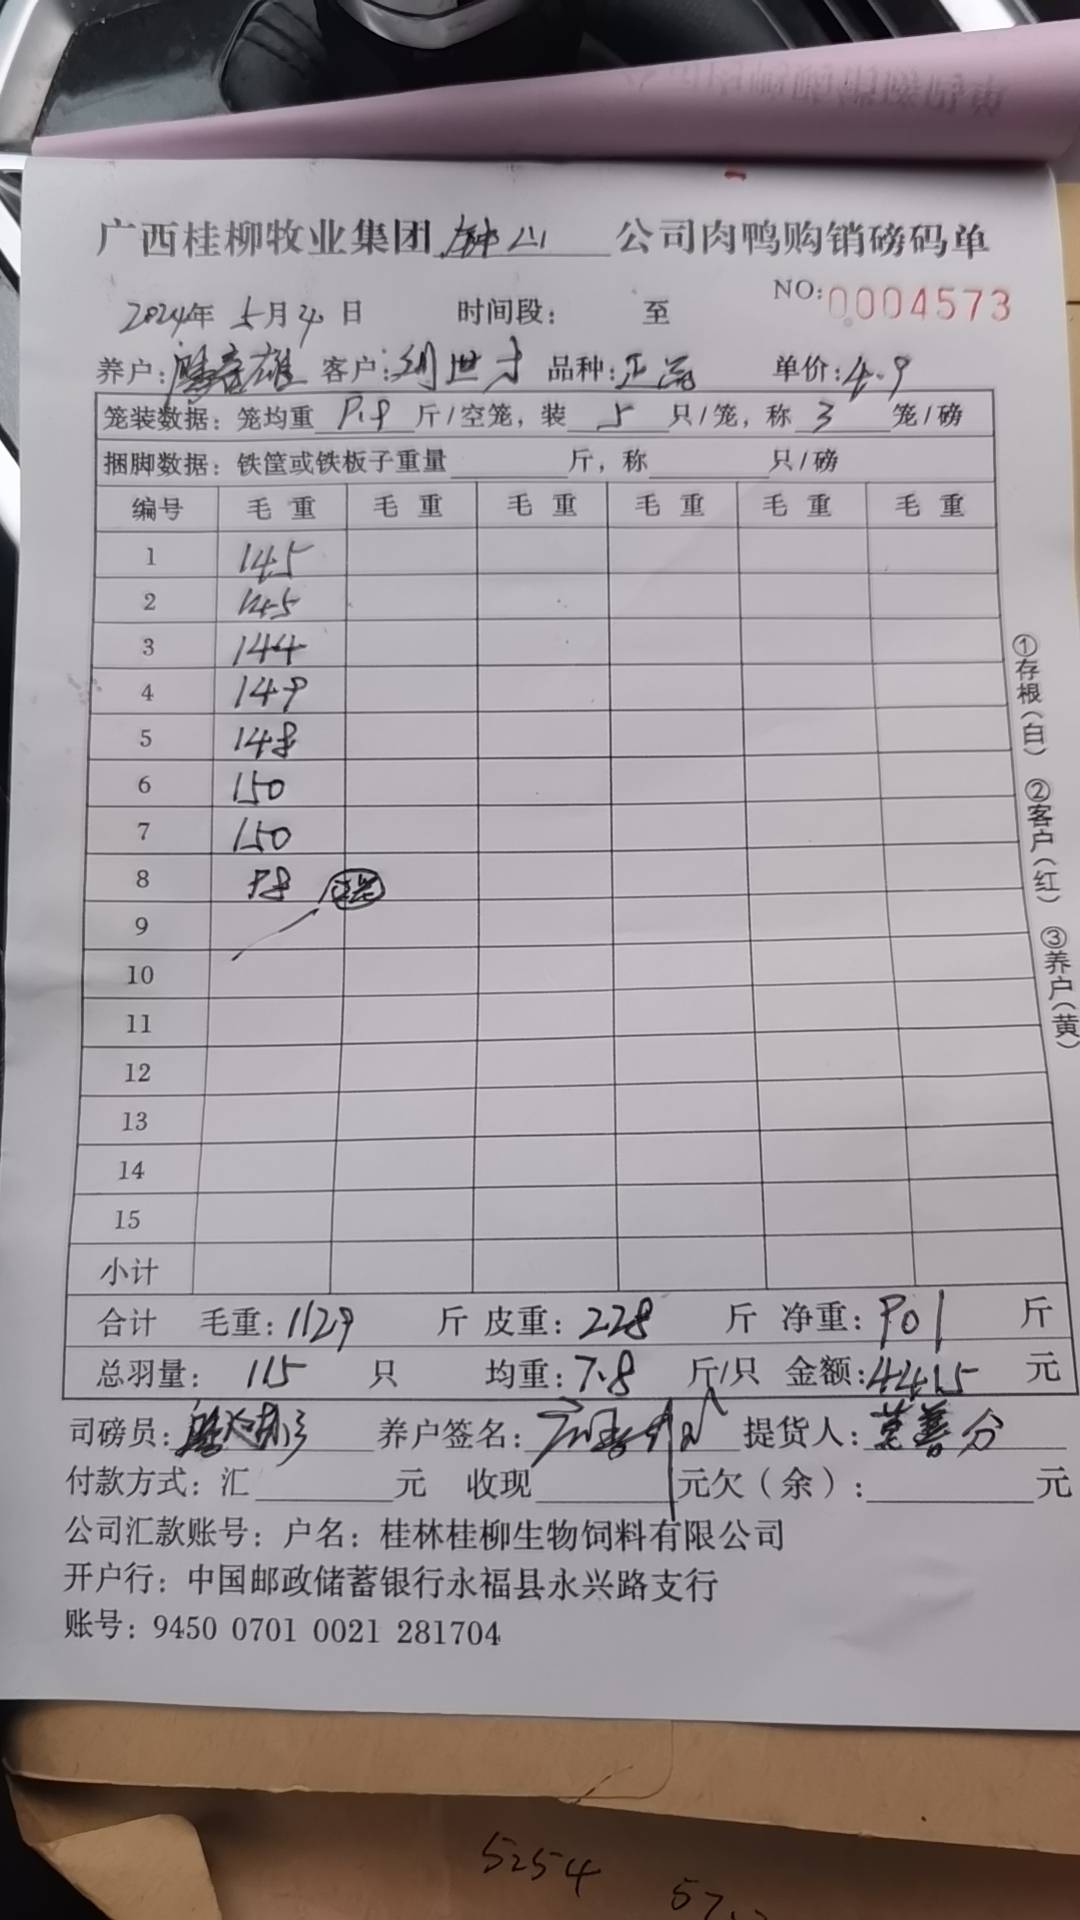 广西桂柳牧业集团 钟山 公司肉鸭购销磅码单
NO:0004573
2024年 5月4日 时间段: 至
养户: 客户:刘世才 品种:正品 单价:4.9
笼装数据: 笼均重 9.9 斤/空笼, 装 5 只/笼, 称 3 笼/磅
捆脚数据: 铁筐或铁板子重量 斤, 称 只/磅
编号 毛重 毛重 毛重 毛重 毛重 毛重
1 145
2 145
3 144
4 149
5 148
6 150
7 150
8 98
9
10
11
12
13
14
15
小计
合计 毛重:1129 斤 皮重:228 斤 净重:901 斤
总羽量: 115 只 均重:7.8 斤/只 金额:4415 元
司磅员: 养户签名: 提货人:莫善分
付款方式: 汇 元 收现 元欠(余): 元
公司汇款账号: 户名: 桂林桂柳生物饲料有限公司
开户行: 中国邮政储蓄银行永福县永兴路支行
账号: 9450 0701 0021 281704
①存根(白) ②客户(红) ③养户(黄)
5254